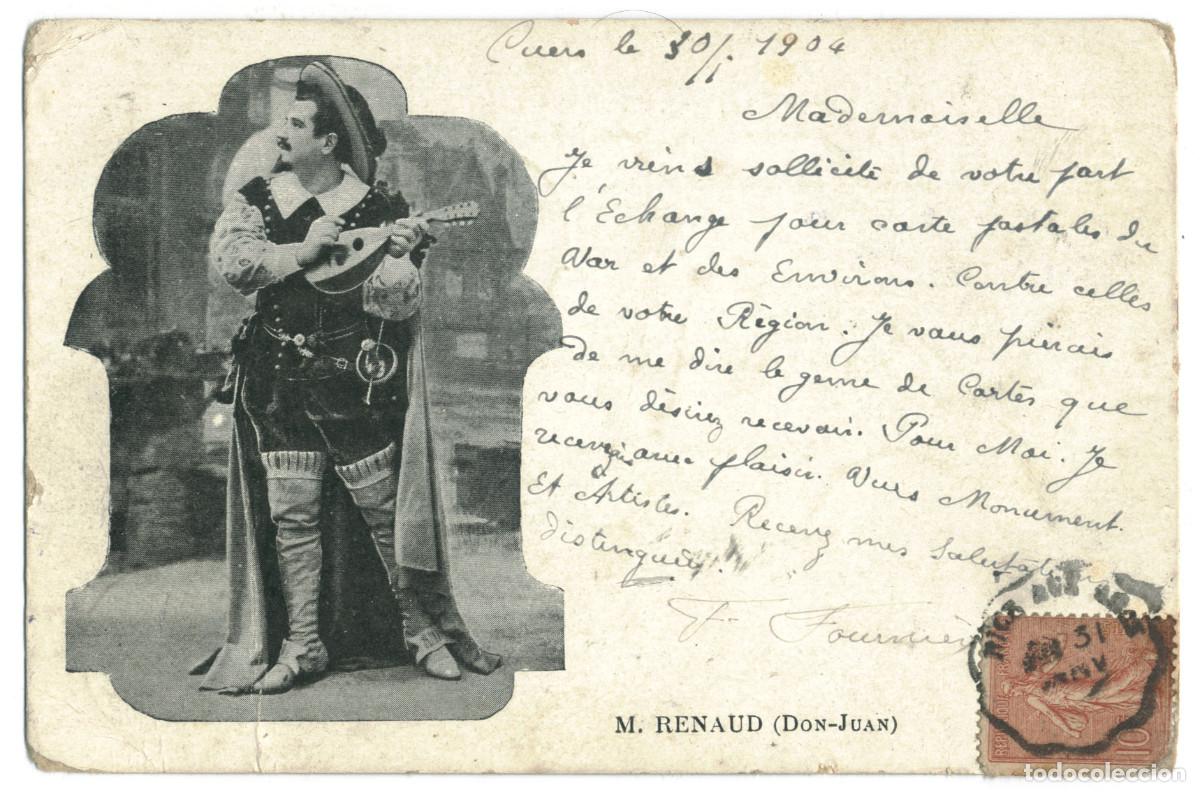 Cuers le 30/1 1904
Mademoiselle
Je viens sollicité de votre part
l'Echange pour carte postales du
Var et des Environs. Contre celles
de votre Région. Je vous pierais
de me dire le genre de Cartes que
vous désirez recevoir. Pour Moi. Je
recevrais avec plaisir. Vues Monument.
Et Artistes. Recevez mes Salutations
distinguées.
F. Fournier
M. RENAUD (DON-JUAN)
31
JANV
10
todocoleccion